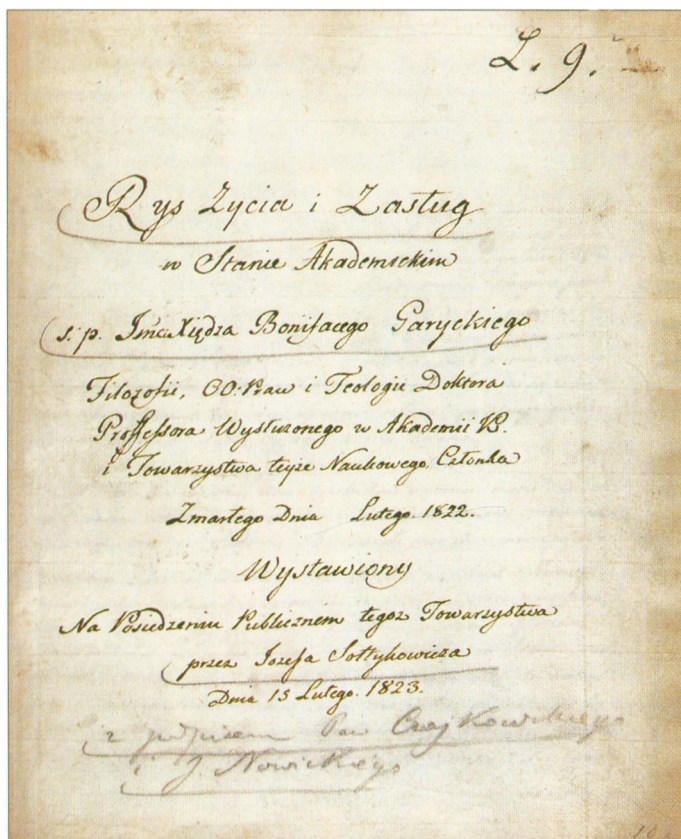 L. 9.
Rys Życia i Zasług
w Stanie Akademickim
ś. p. Imć Xiędza Bonifacego Garyckiego
Filozofii, OO. Praw i Teologii Doktora
Professora Wysłużonego w Akademii K.
i Towarzystwa teyże Naukowego Członka
Zmarłego Dnia Lutego. 1822.
Wystawiony
Na Posiedzeniu Publicznem tegoż Towarzystwa
przez Jozefa Sołtykowicza
Dnia 15 Lutego. 1823.
z podpisem Paw Czajkowskiego
i J. Nowickiego